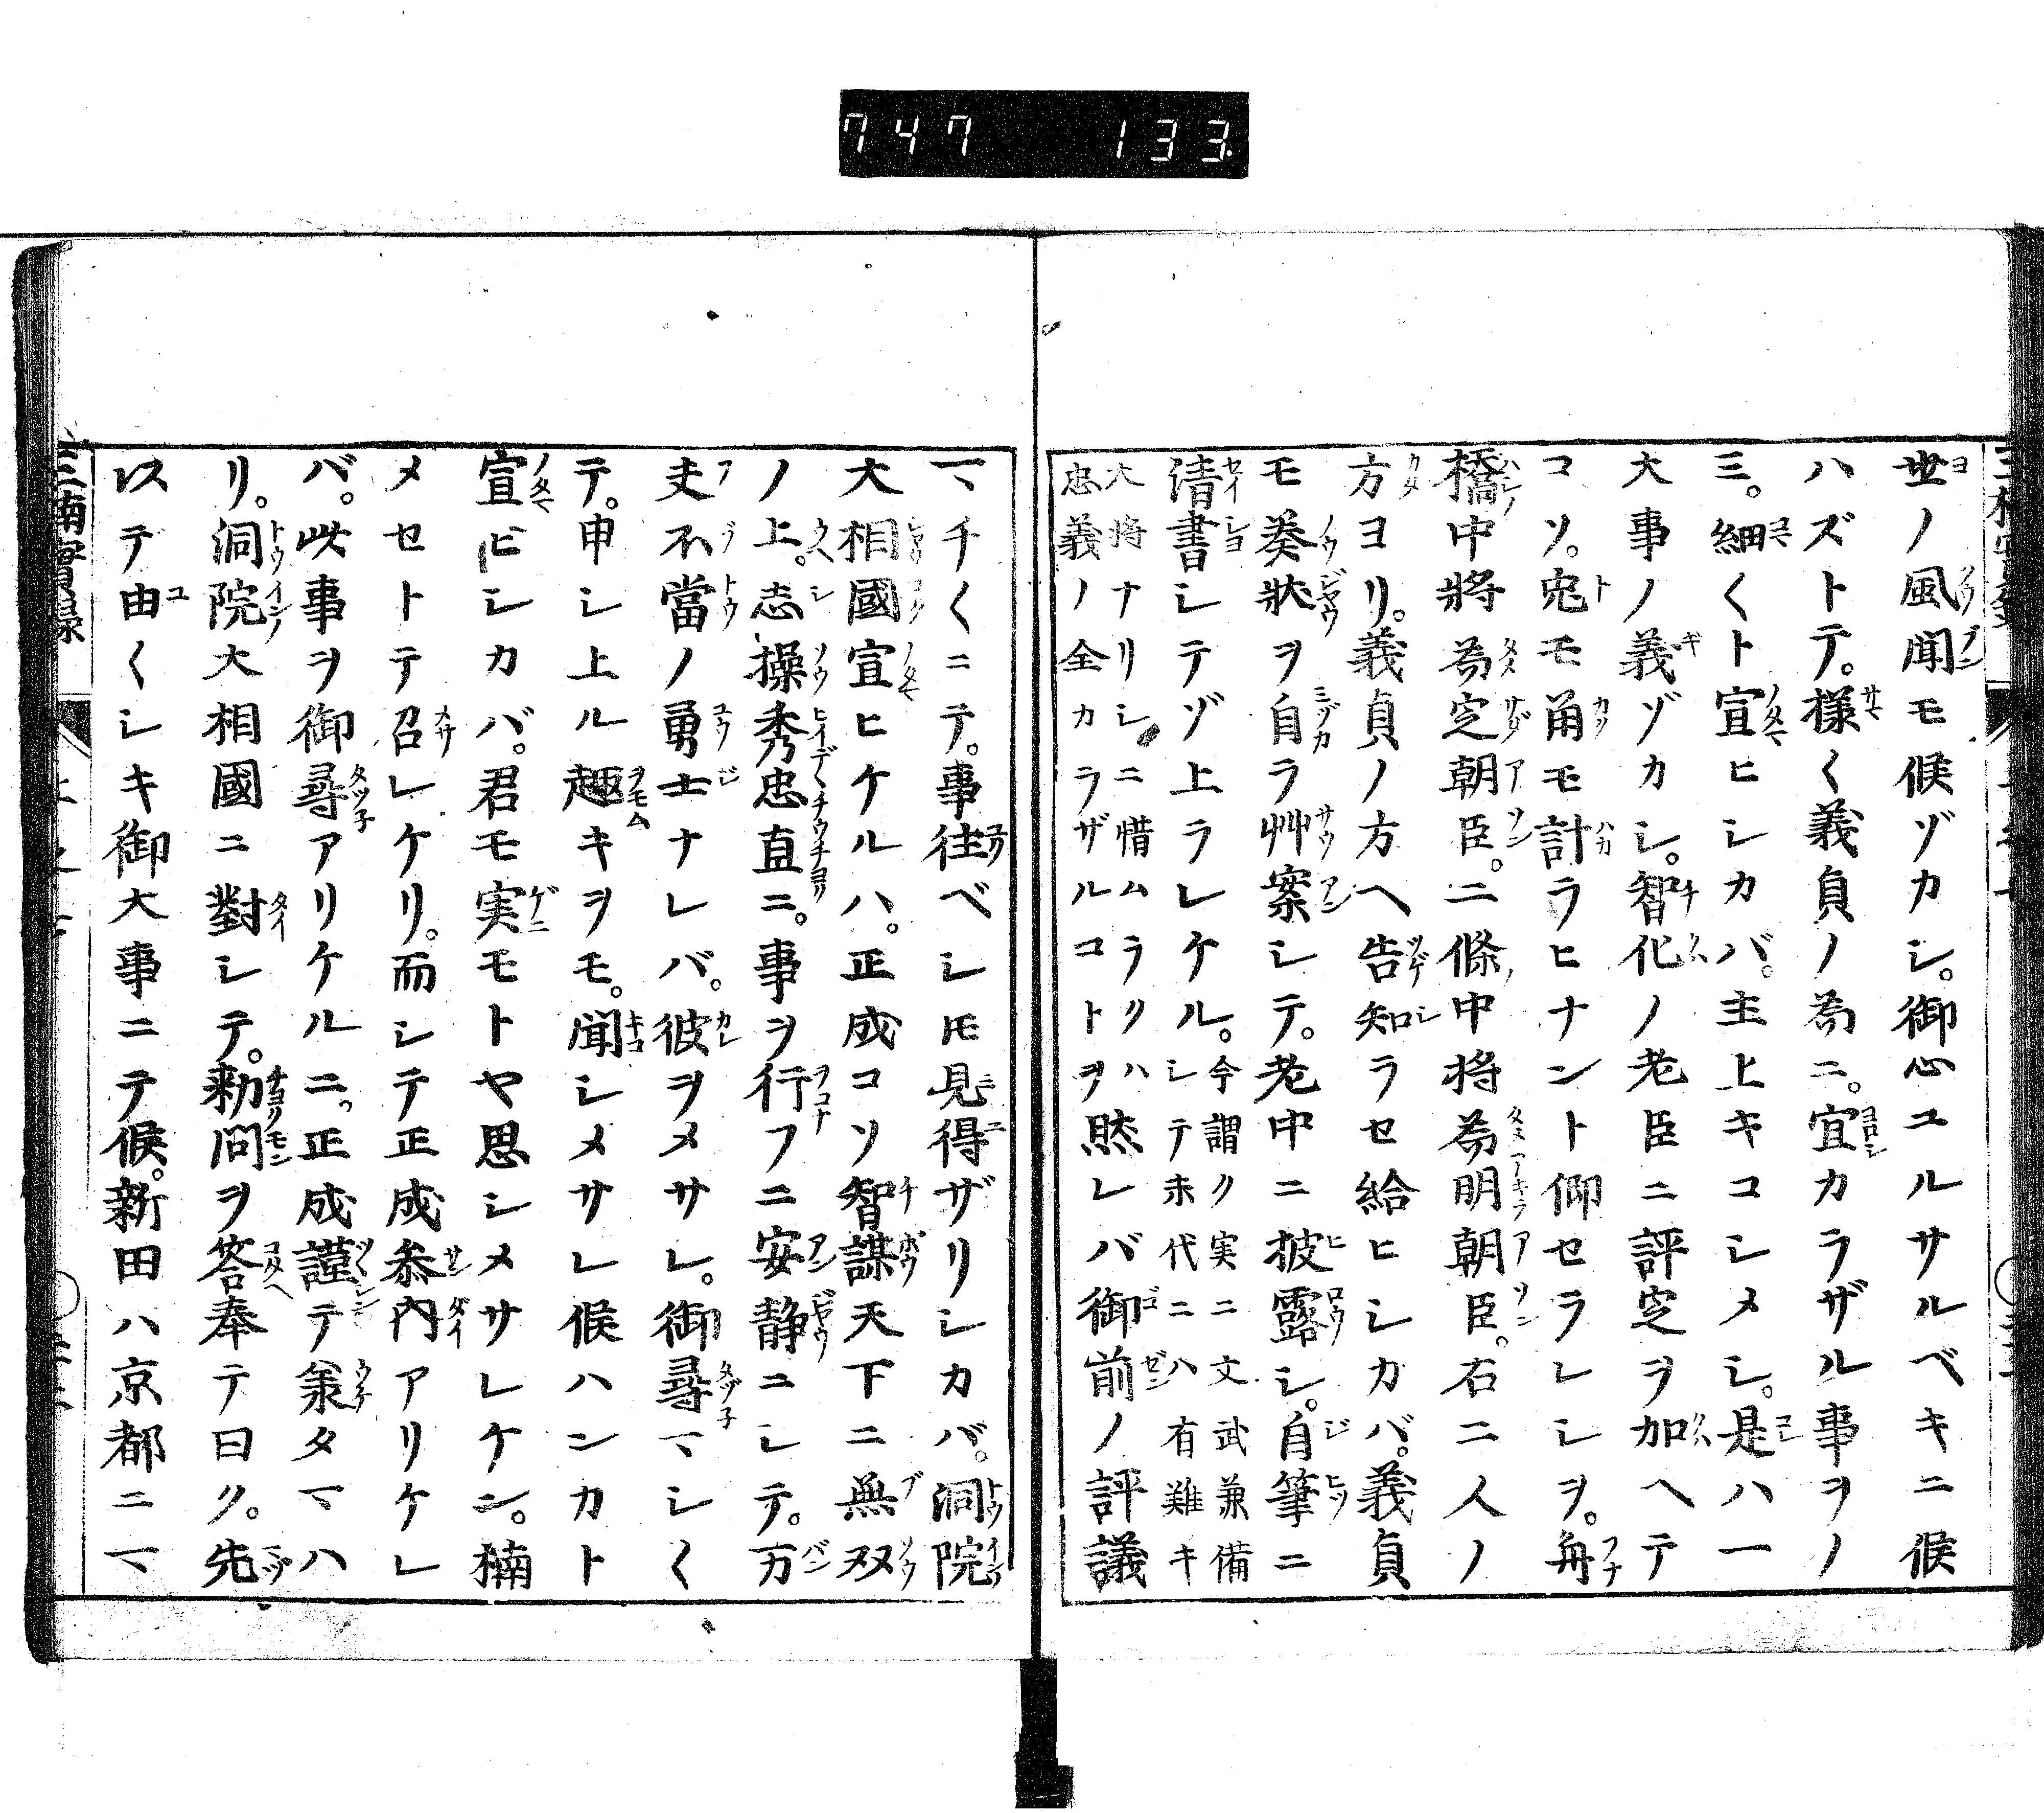 747 133
世ノ風聞モ候ゾカシ。御心ユルサルベキニ候
ハズトテ。様〱義貞ノ為ニ。宜カラザル事ヲノ
三。細〱ト宣ヒシカバ。主上キコシメシ。是ハ一
大事ノ義ゾカシ。智化ノ老臣ニ評定ヲ加ヘテ
コソ。兎モ角モ計ラヒナント仰セラレシヲ。舟
橋中將為定朝臣。二條中将為明朝臣。右二人ノ
方ヨリ。義貞ノ方ヘ告知ラセ給ヒシカバ。義貞
モ奏狀ヲ自ラ艸案シテ。老中ニ披露シ。自筆ニ
清書シテゾ上ラレケル。今謂ク実ニ文武兼備
シテ末代ニハ有難キ
大将ナリシニ惜ムラクハ
忠義ノ全カラザルコトヲ然レバ御前ノ評議
マチ〱ニテ。事往ベシ𪜈見得ザリシカバ。洞院
大相國宣ヒケルハ。正成コソ智謀天下ニ無双
ノ上。志操秀忠直ニ。事ヲ行フニ安静ニシテ。万
夫不當ノ勇士ナレバ。彼ヲメサレ。御尋マシ〱
テ。申シ上ル趣キヲモ。聞シメサレ候ハンカト
宣ヒシカバ。君モ実モトヤ思シメサレケン。楠
メセトテ召レケリ。而シテ正成参内アリケレ
バ。此事ヲ御尋アリケルニ。正成謹テ𣴎タマハ
リ。洞院大相國ニ對シテ。勅問ヲ答奉テ曰ク。先
以テ由〱シキ御大事ニテ候。新田ハ京都ニマ
三楠實録